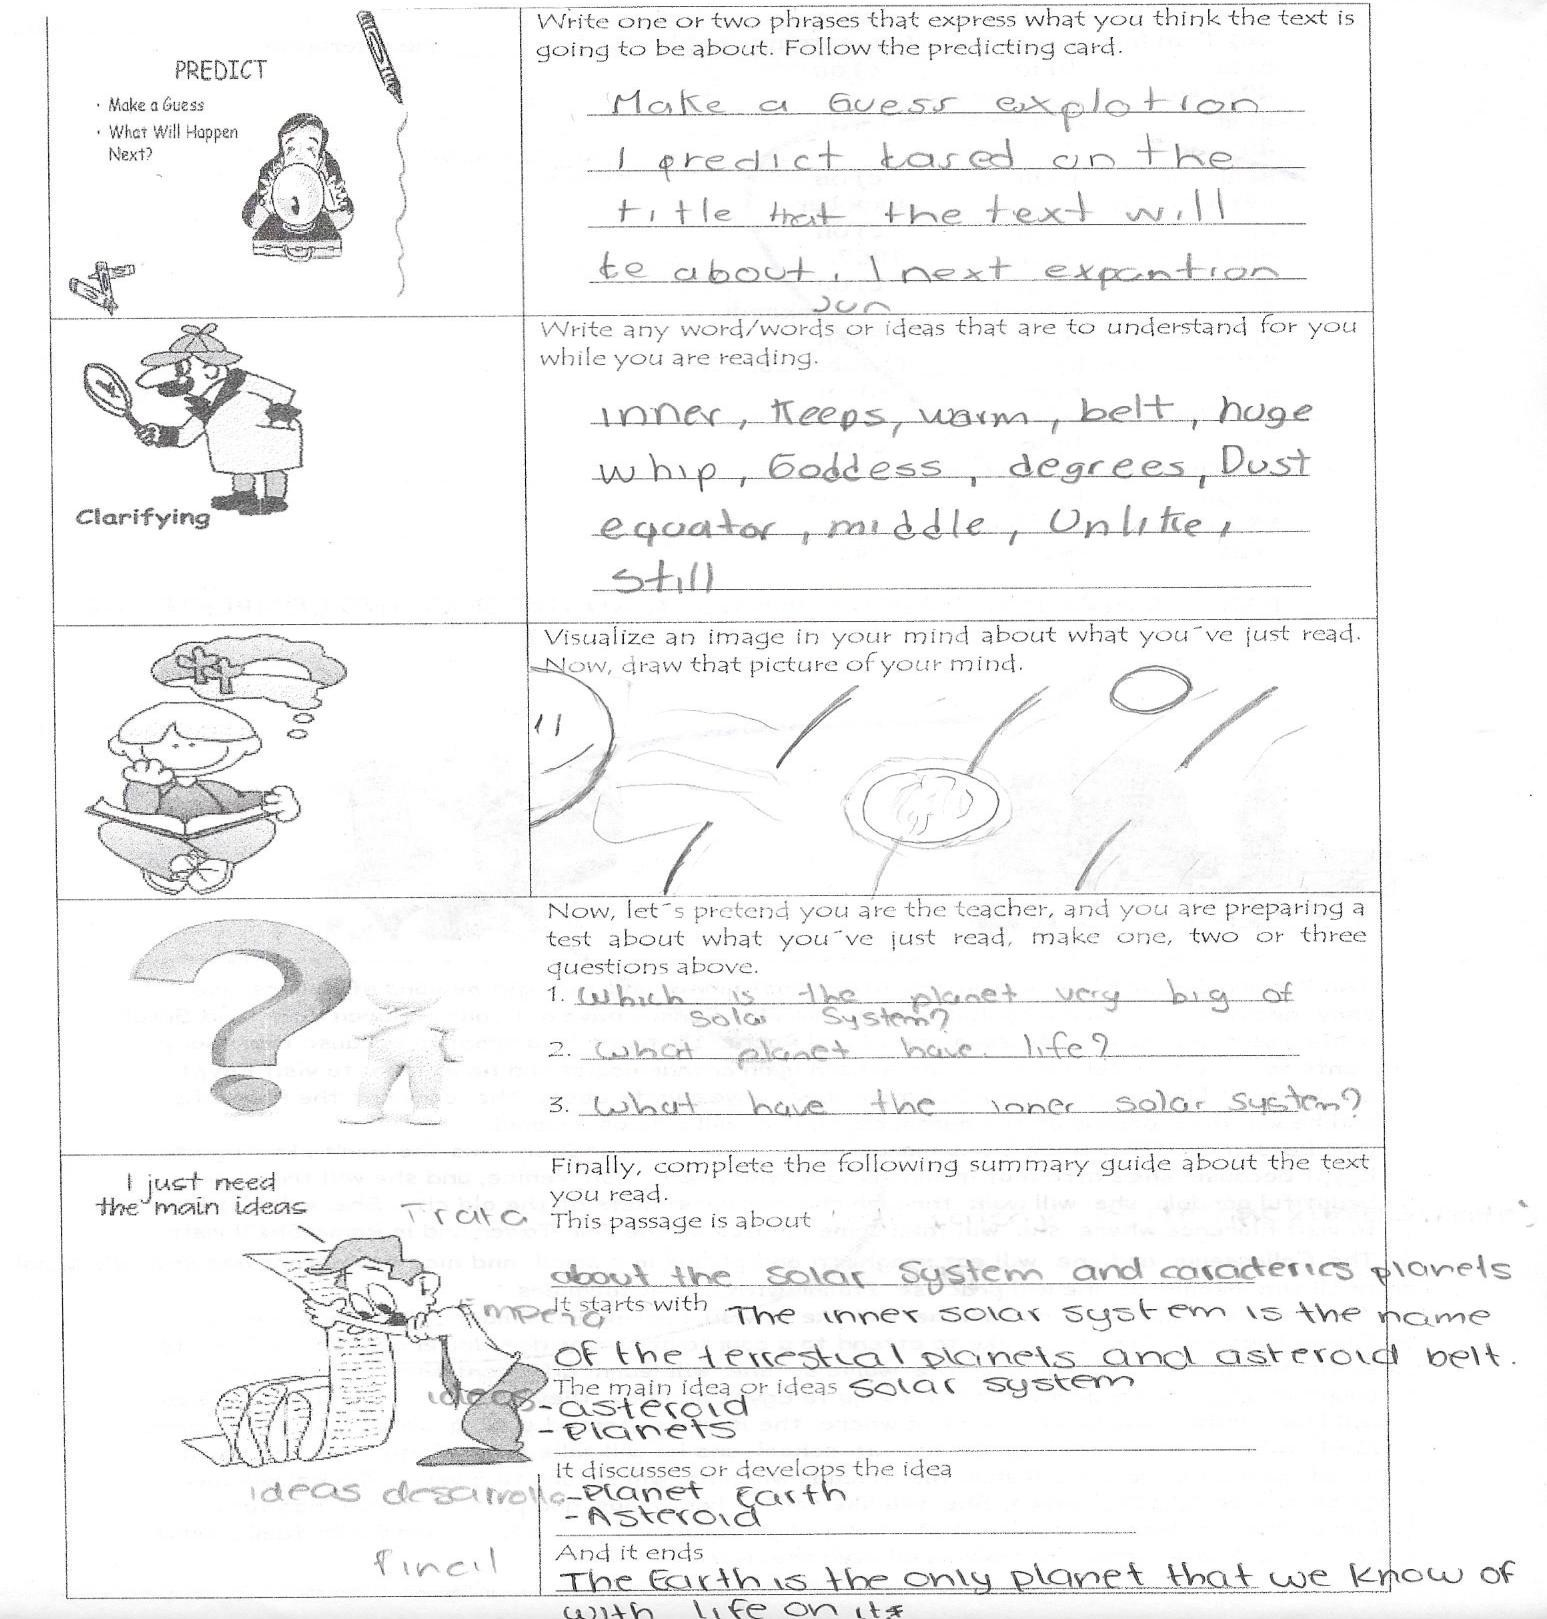 PREDICT
· Make a Guess
· What Will Happen
Next?
Write one or two phrases that express what you think the text is
going to be about. Follow the predicting card.
Make a Guess explotion
I predict based on the
title that the text will
be about. I next expantion
sun
Clarifying
Write any word/words or ideas that are to understand for you
while you are reading.
inner, Keeps, warm, belt, huge
whip, Goddess, degrees, Dust
equator, middle, Unlike,
still
Visualize an image in your mind about what you´ve just read.
Now, draw that picture of your mind.
Now, let´s pretend you are the teacher, and you are preparing a
test about what you´ve just read, make one, two or three
questions above.
1. Which is the planet very big of
Solar System?
2. What planet have life?
3. What have the inner solar system?
I just need
the main ideas
Finally, complete the following summary guide about the text
you read.
Trata
This passage is about
about the solar System and caracterics planets
Empeza
It starts with The inner solar system is the name
of the terrestial planets and asteroid belt.
The main idea or ideas solar system
ideas
-asteroid
-Planets
It discusses or develops the idea
ideas desarrollo
-Planet Earth
-Asteroid
And it ends
The Earth is the only planet that we know of
with life on it